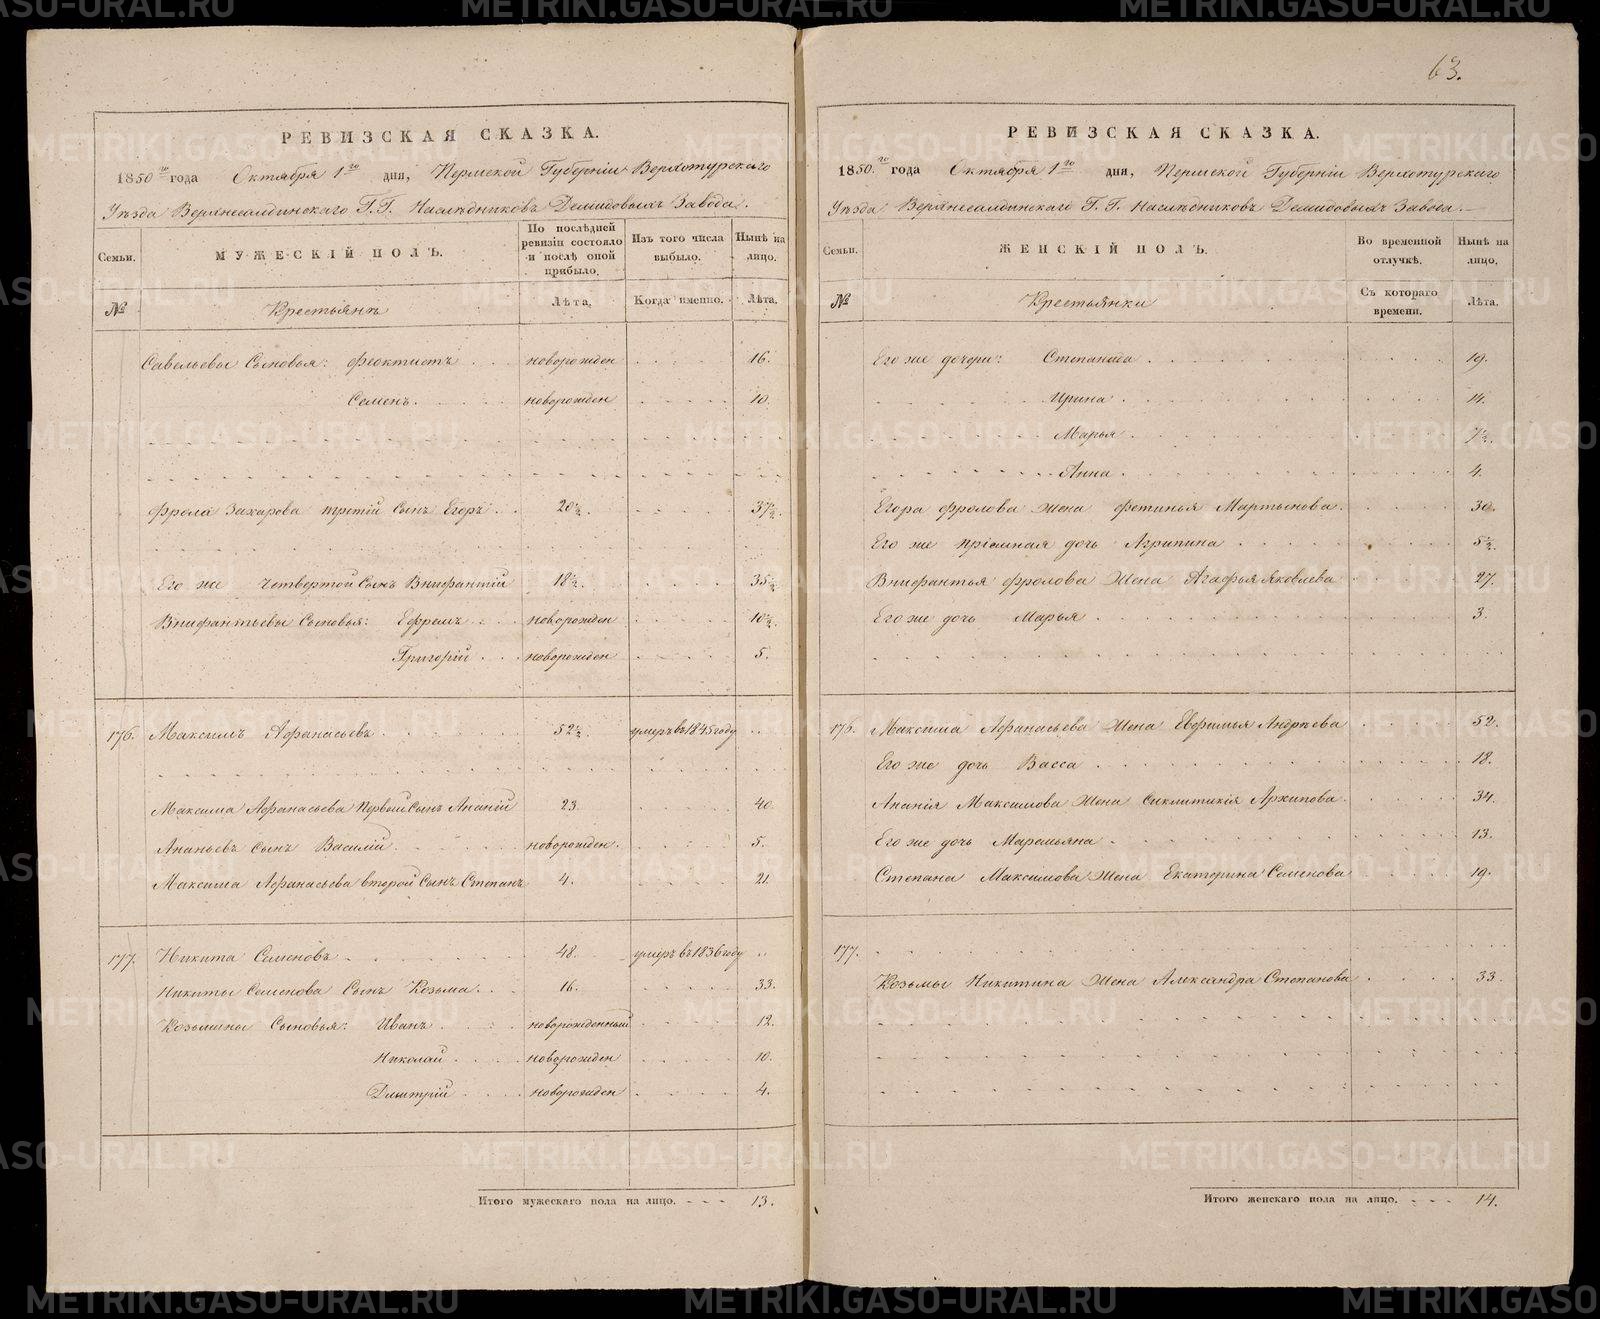 63.
РЕВИЗСКАЯ СКАЗКА.
1850го года Октября 1го дня, Пермской Губернiи Верхотурскаго
Уѣзда Верхнесалдинскаго Г.Г. Наслѣдниковъ Демидовыхъ Завода.
Семьи.
МУЖЕСКІЙ ПОЛЪ.
По послѣдней ревизіи состояло и послѣ оной прибыло.
Изъ того числа выбыло.
Нынѣ на лицо.
№
Крестьянъ
Лѣта.
Когда именно.
Лѣта.
Савельевы Сыновья: Феоктистъ новорожден 16.
Семенъ. новорожден 10.
Фрола Захарова третiй Сынъ Егоръ 20½. 37½.
Его же четвертой Сынъ Внифантiй 18½. 35½
Внифантьевы Сыновья: Ефремъ новорожден 10½.
Григорiй новорожден 5.
176. Максимъ Афанасьевъ 52½. умеръ въ 1845 году
Максима Афанасьева Первой Сынъ Ананiй 23. 40.
Ананьевъ Сынъ Василiй новорожден. 5.
Максима Афанасьева второй Сынъ Степанъ 4. 21.
177. Никита Семеновъ 48. умеръ въ 1836 году
Никиты Семенова Сынъ Козьма. 16. 33.
Козьмины Сыновья: Иванъ новорожденный 12.
Николай новорожден 10.
Дмитрiй новорожден 4.
Итого мужескаго пола на лицо. 13.
РЕВИЗСКАЯ СКАЗКА.
1850.го года Октября 1го дня, Пермской Губернiи Верхотурскаго
Уѣзда Верхнесалдинскаго Г.Г. Наслѣдниковъ Демидовыхъ Завода.
Семьи.
ЖЕНСКІЙ ПОЛЪ.
Во временной отлучкѣ.
Нынѣ на лицо.
№
Крестьянки
Съ котораго времени.
Лѣта.
Его же дочери: Степанида 19.
Ирина 14.
Марья 7½.
Анна 4.
Егора Фролова Жена Фетинья Мартынова. 30.
Его же прiемная дочь Агрипина 5½.
Внифантья Фролова Жена Агафья Яковлева 27.
Его же дочь Марья 3.
176. Максима Афанасьева Жена Евфимья Андрѣева 52.
Его же дочь Васса 18.
Ананiя Максимова Жена Сиклитикiя Архипова. 34.
Его же дочь Маремьяна 13.
Степана Максимова Жена Екатерина Семенова 19.
177.
Козьмы Никитина Жена Александра Степанова 33.
Итого женскаго пола на лицо. 14.
METRIKI.GASO-URAL.RU